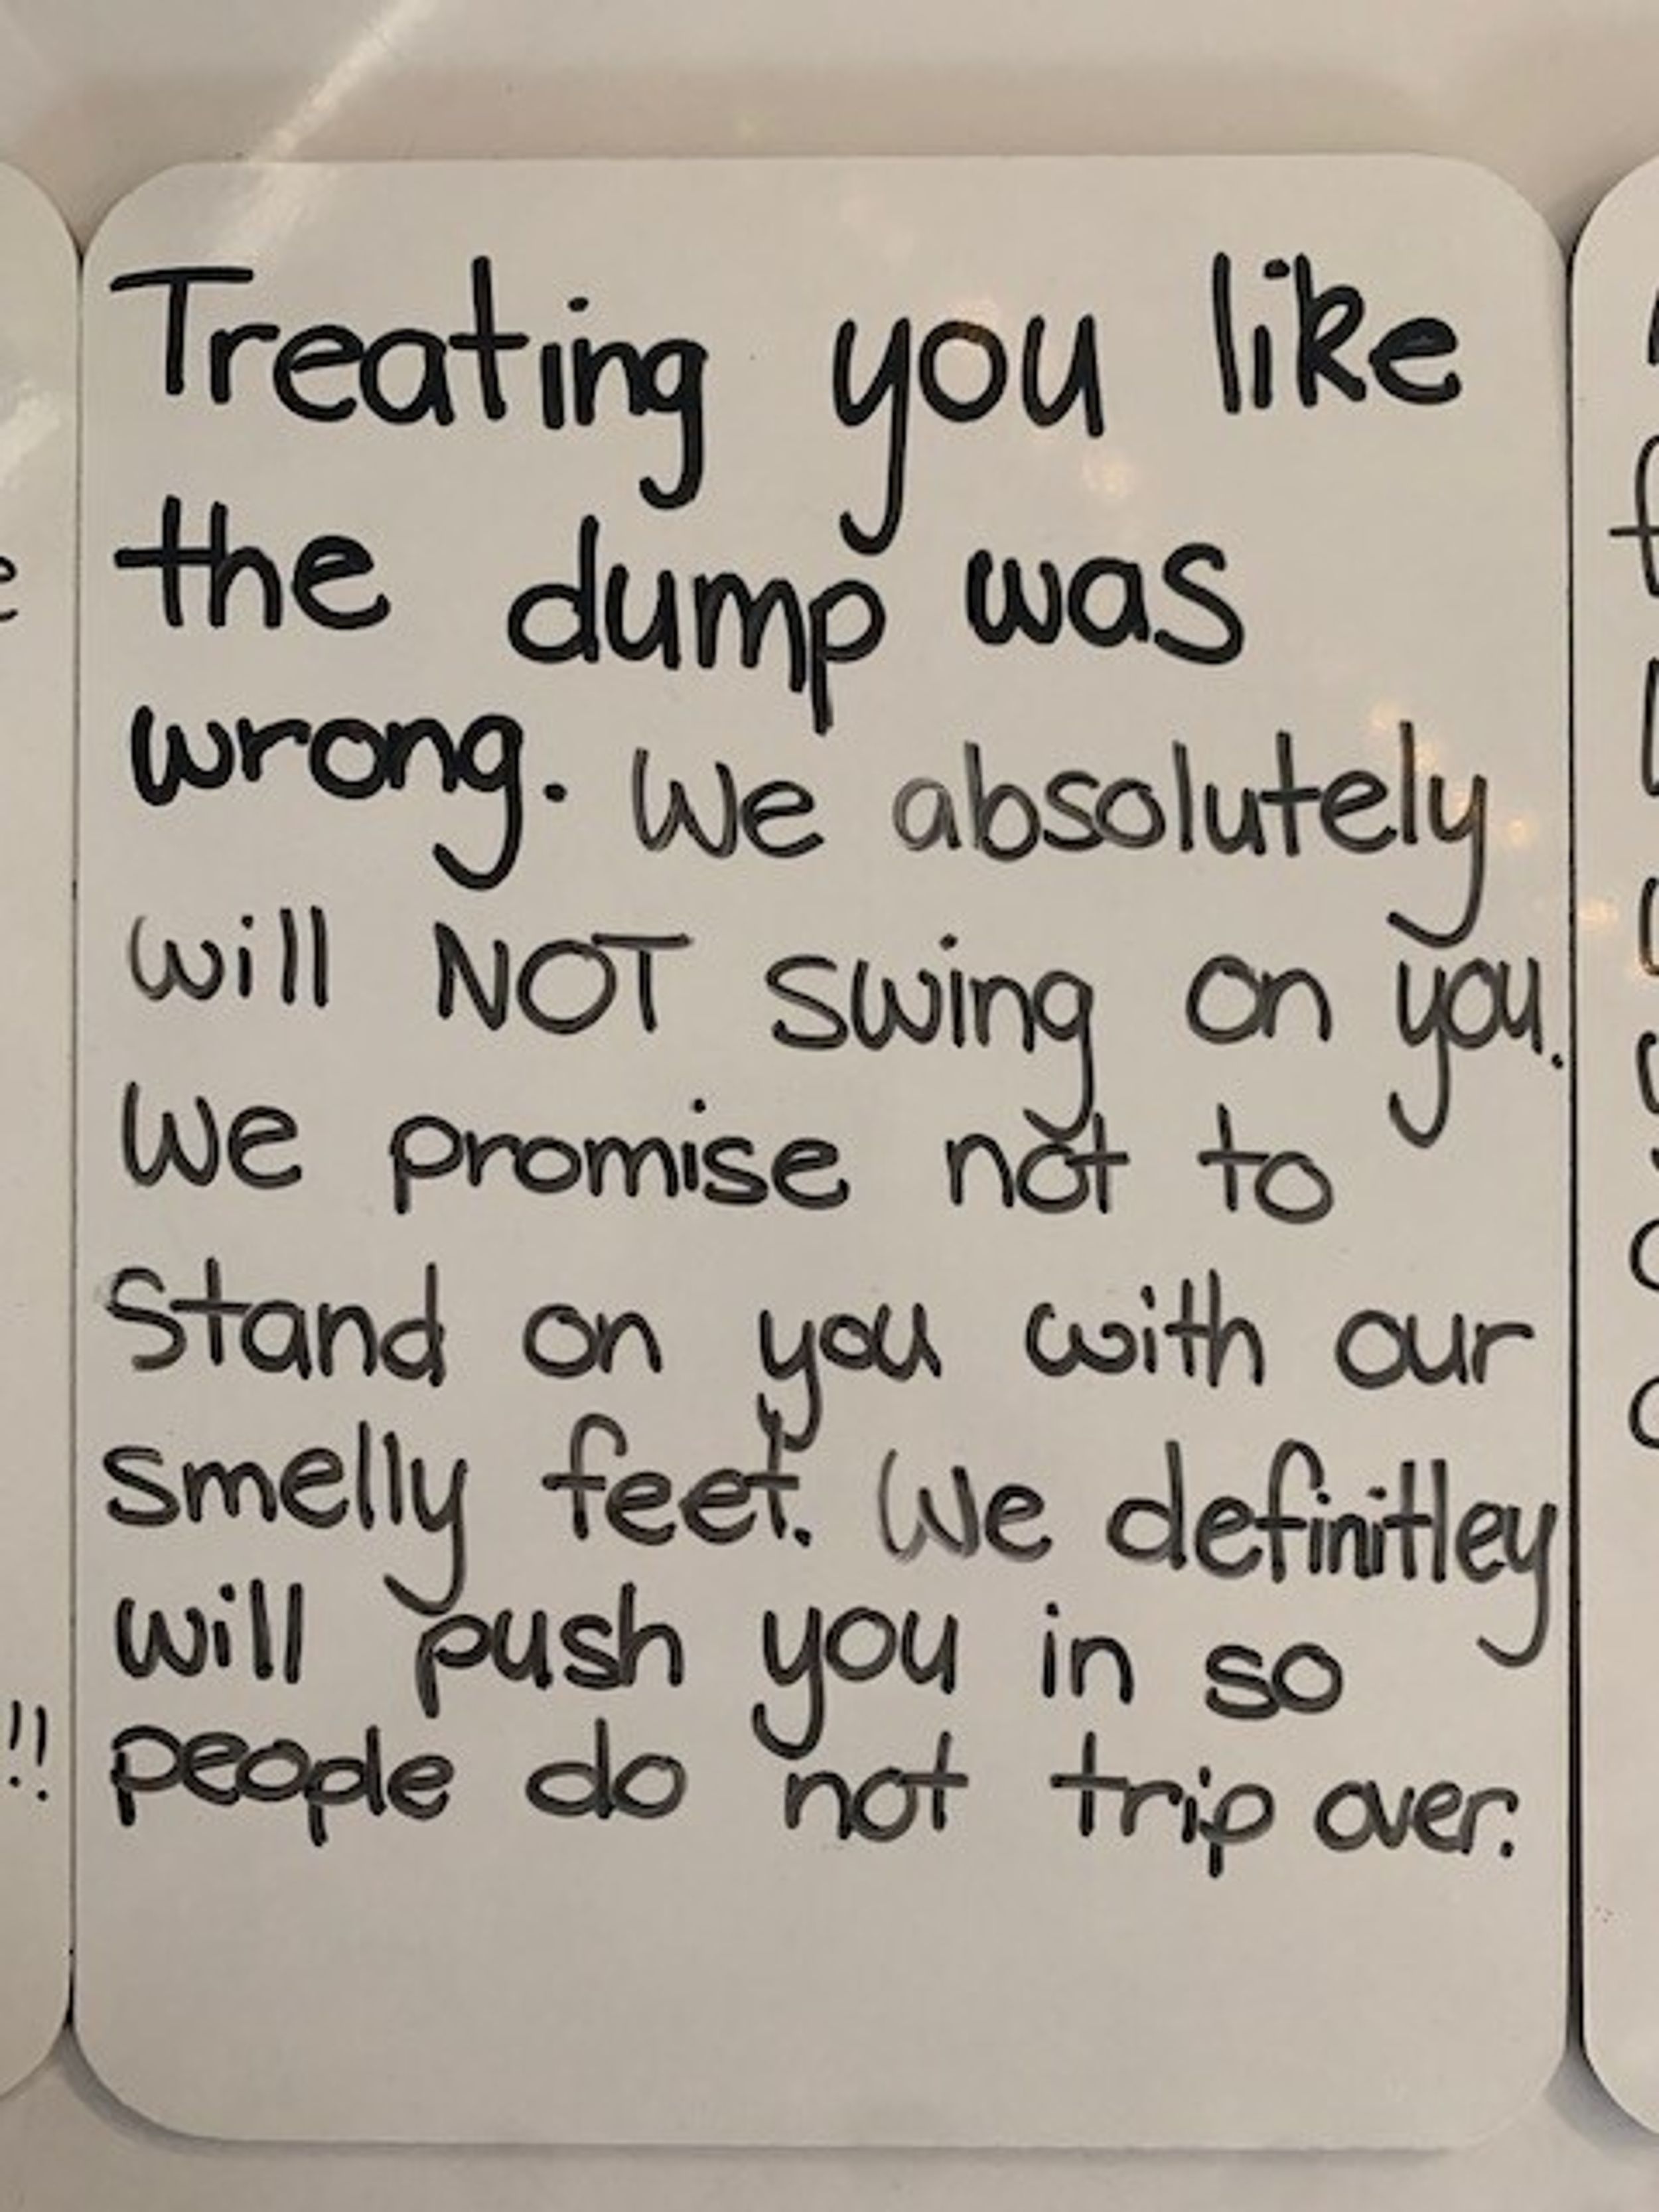 Treating you like
the dump was
wrong. We absolutely
will NOT swing on you.
We promise not to
Stand on you with our
smelly feet. We definitley
will push you in so
people do not trip over.
!!